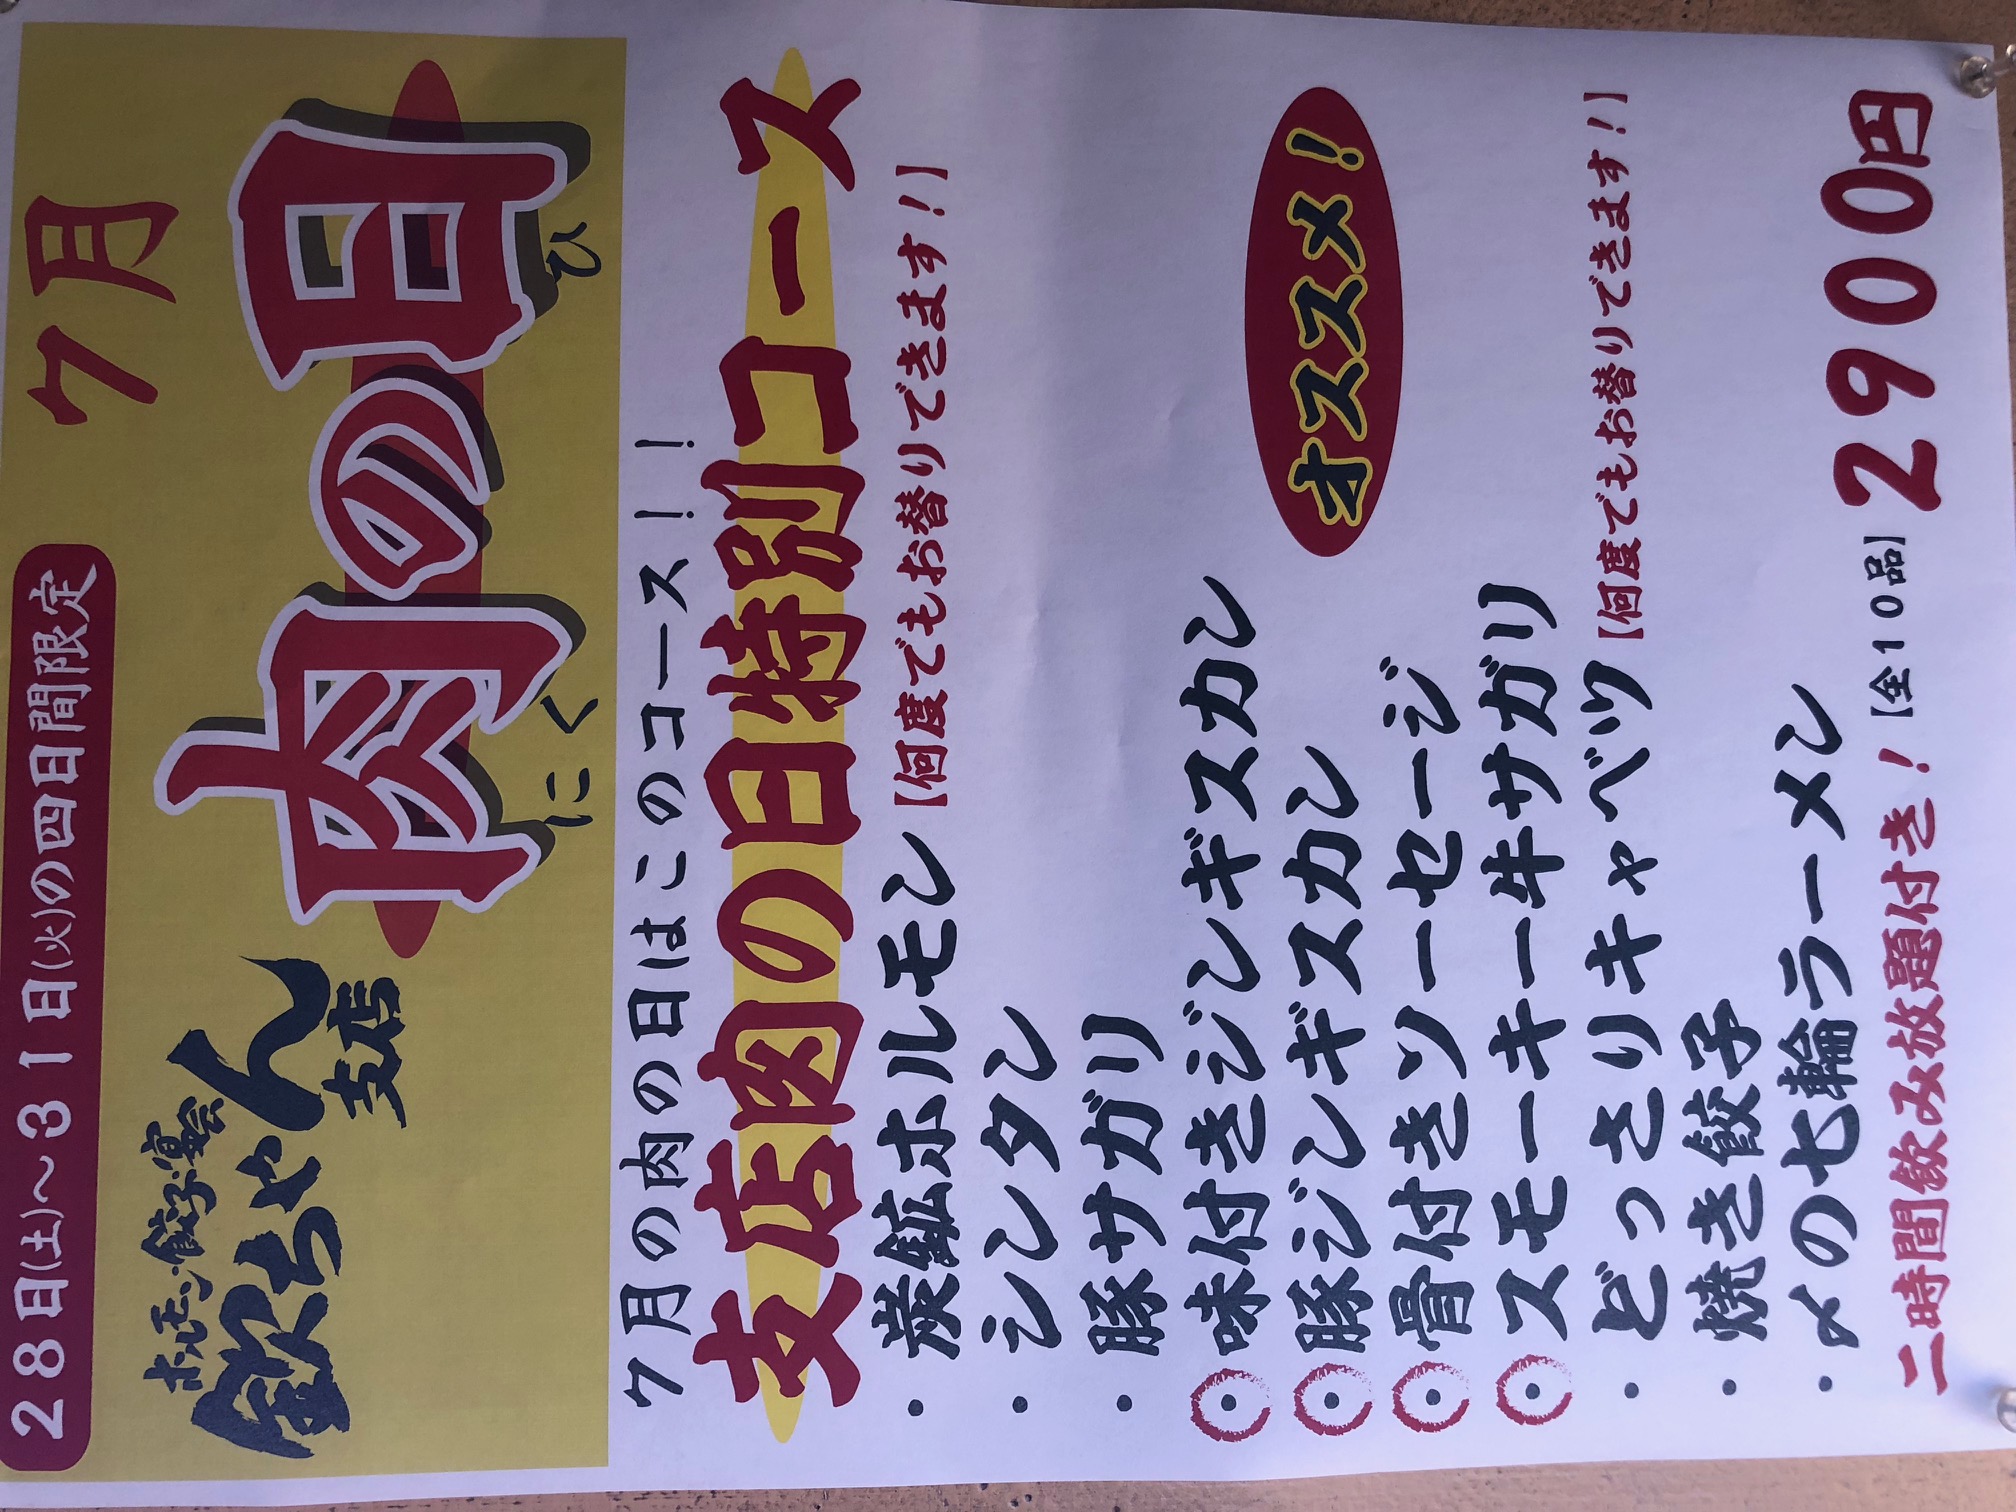 28日(土)～31日(火)の四日間限定
7月
ホルモン・餃子・宴会
欽ちゃん
支店
肉の日
にく ひ
7月の肉の日はこのコース！！
支店肉の日特別コース
・炭鉱ホルモン【何度でもお替りできます！】
・シンタン
・豚サガリ
・味付きジンギスカン
・豚ジンギスカン
・骨付きソーセージ
・スモーキー牛サガリ
オススメ！
・どっさりキャベツ【何度でもお替りできます！】
・焼き餃子
・〆の七輪ラーメン
二時間飲み放題付き！【全10品】2900円